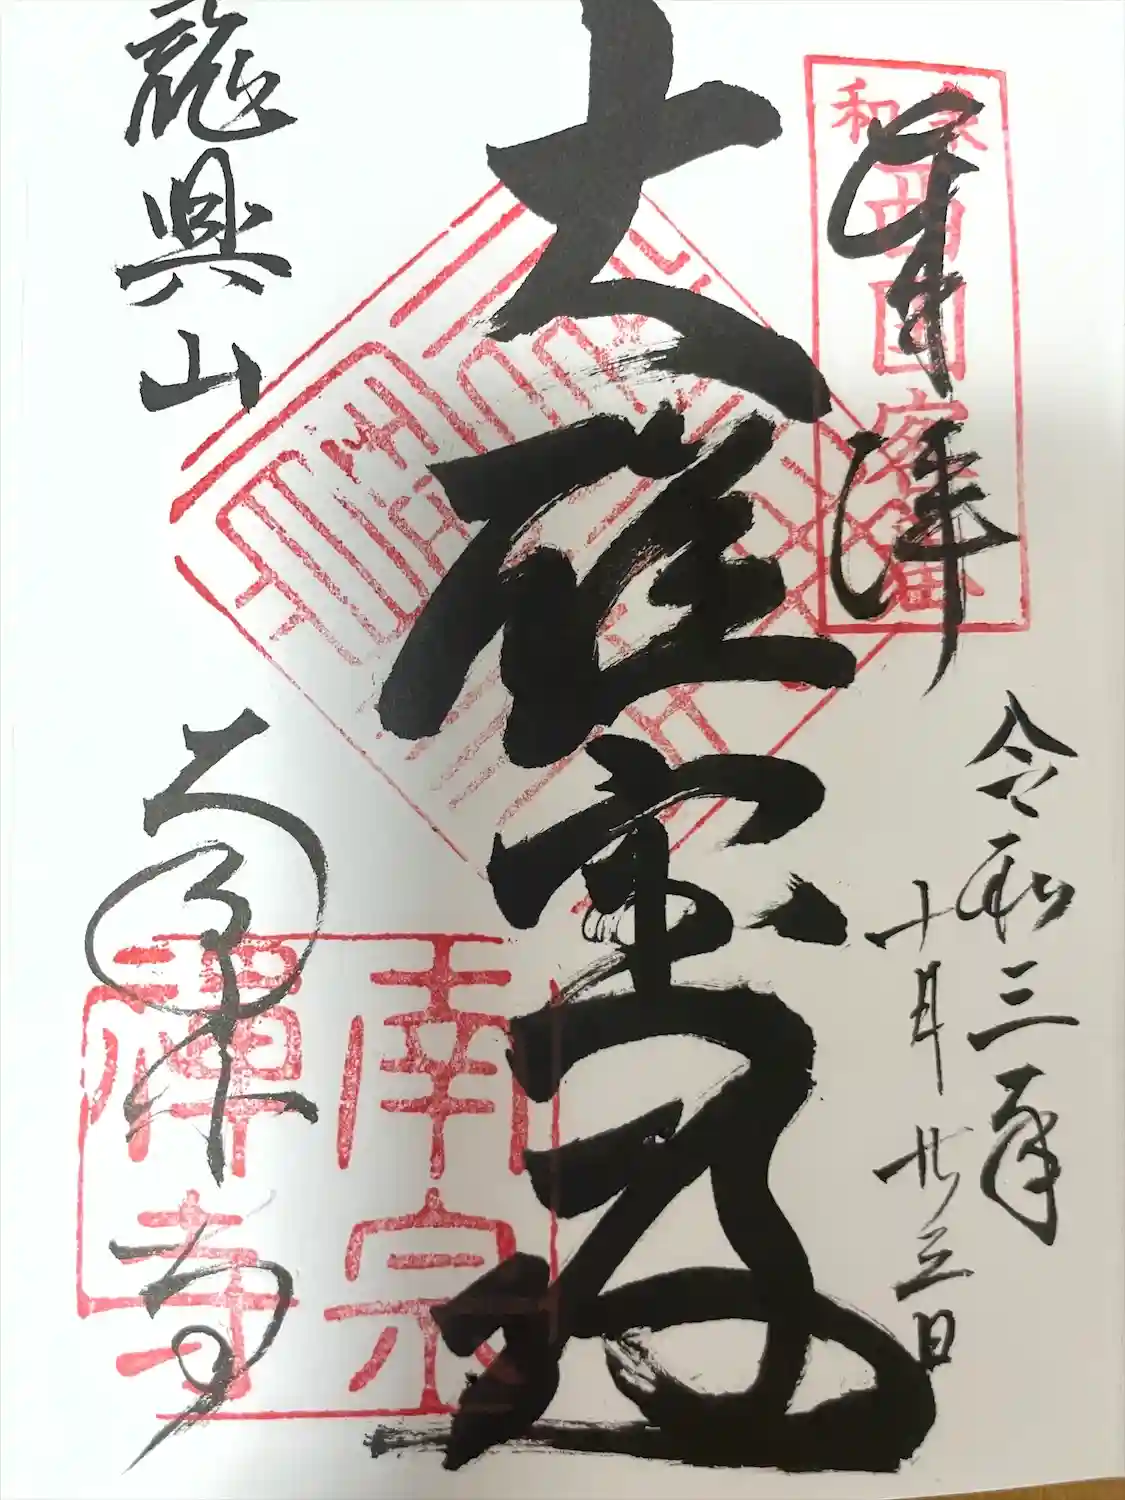 奉拝
和泉
西国客番
令和三年
十月廿三日
大雄宝殿
龍興山
南宗寺
南宗
禅寺